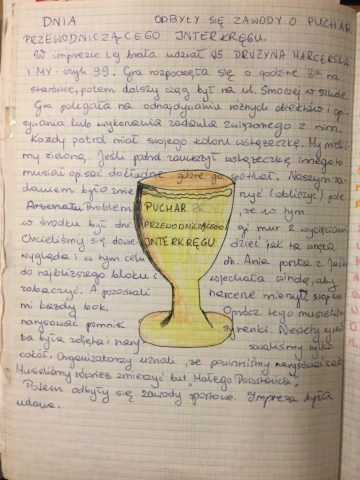 DNIA ODBYŁY SIĘ ZAWODY O PUCHAR
PRZEWODNICZĄCEGO INTERKRĘGU.
W imprezie tej brała udział 95 DRUŻYNA HARCERSKA
i MY - czyli 99. Gra rozpoczęła się o godzinie 8 na
starówce, potem dalszy ciąg był na ul. Smoczej w szkole
Gra polegała na odnajdywaniu różnych obiektów i opi-
sywania lub wykonania zadania związanego z nim.
Każdy patrol miał swojego koloru wstążeczkę. My mieli-
my zieloną. Jeśli patrol zauważył wstążeczkę innego to
musiał opisać dokładnie gdzie go spotkał. Naszym za-
daniem było zmie nyć (obliczyć) pole
Arsenału. Problem że w tym
w środku był dru gi mur z wycięciami
Chcieliśmy się dowie dzieć jak to
wygląda i w tym celu dh. Ania poszła z
do najbliższego bloku i wjechała windą, aby
zobaczyć. A pozostali harcerze mierzyli stopka-
mi każdy bok. Oprócz tego musieliśmy
narysować pomnik syrenki. Niestety
ba była zdjęta i nary sowaliśmy tylko
cokół. Organizatorzy uznali, że powinniśmy narysować
Musieliśmy również zmierzyć but "Małego Powstańca".
Potem odbyły się zawody sportowe. Impreza była
udana.
PUCHAR PRZE
PRZEWODNICZĄCEGO
INTERKRĘGU